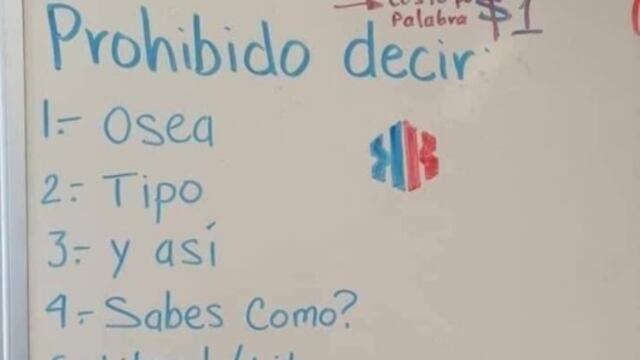 Palabra $1
Prohibido decir:
1.- Osea
2.- Tipo
3.- y así
4.- Sabes Como?